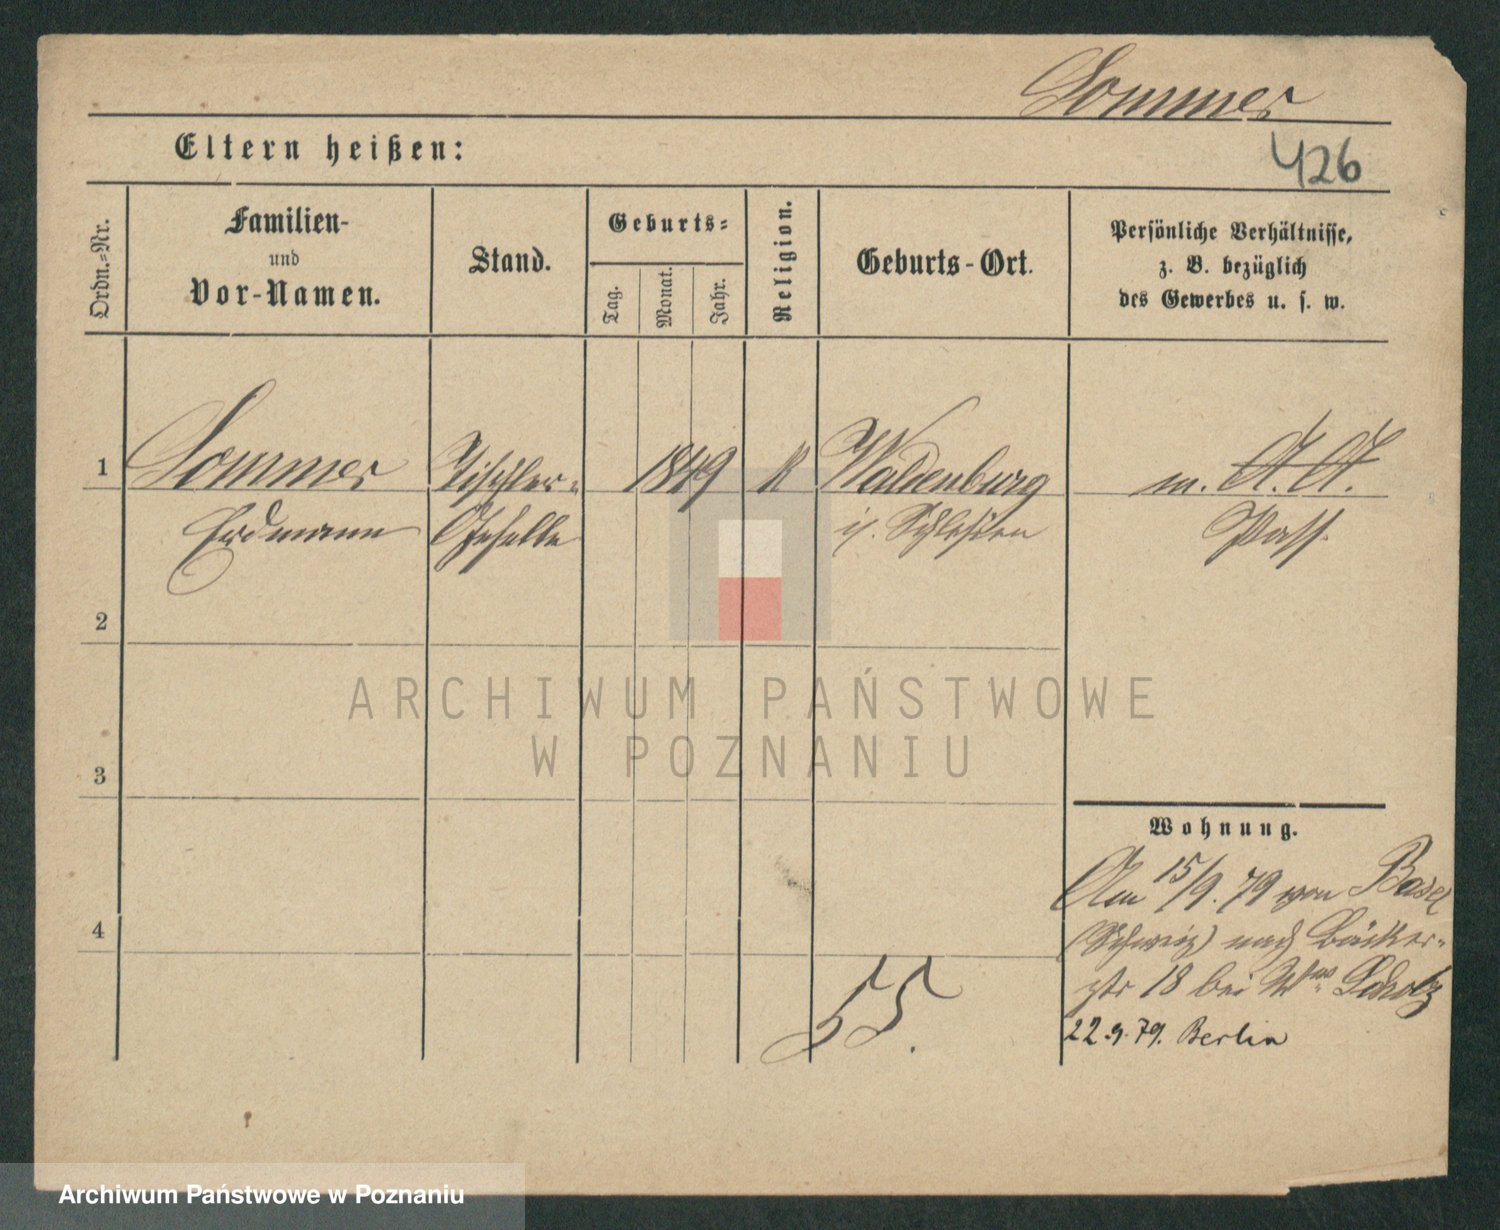 Sommer
426
Eltern heißen:
Ordn.-Nr.
Familien-
und
Vor-Namen.
Stand.
Geburts-
Tag.
Monat.
Jahr.
Religion.
Geburts-Ort.
Persönliche Verhältnisse,
z. B. bezüglich
des Gewerbes u. s. w.
1 Sommer Tischler- 1849 K Waldenburg m. A. A.
Erdmann Geselle i/. Schlesien Pass.
2
3
4
ARCHIWUM PAŃSTWOWE
W POZNANIU
Wohnung.
Am 15/9. 79 von Basel
(Schweiz) nach Bäcker-
str 18 bei Scholz
22.9.79. Berlin
55.
Archiwum Państwowe w Poznaniu